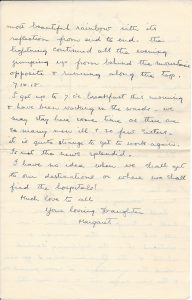 most beautiful rainbow with its
reflection from end to end. the
lightning continued all the evening
jumping up from behind the mountains
opposite & running along the top.
7.10.18.
I got up to 7. o'c breakfast this morning
& have been working in the wards. we
may stay here some time as there are
so many men ill & so few Sisters.
it is quite strange to get to work again.
Is not the news splendid.
I have no idea when we shall get
to our destination or where we shall
find the hospitals!
Much love to all
Your loving Daughter
Margaret.